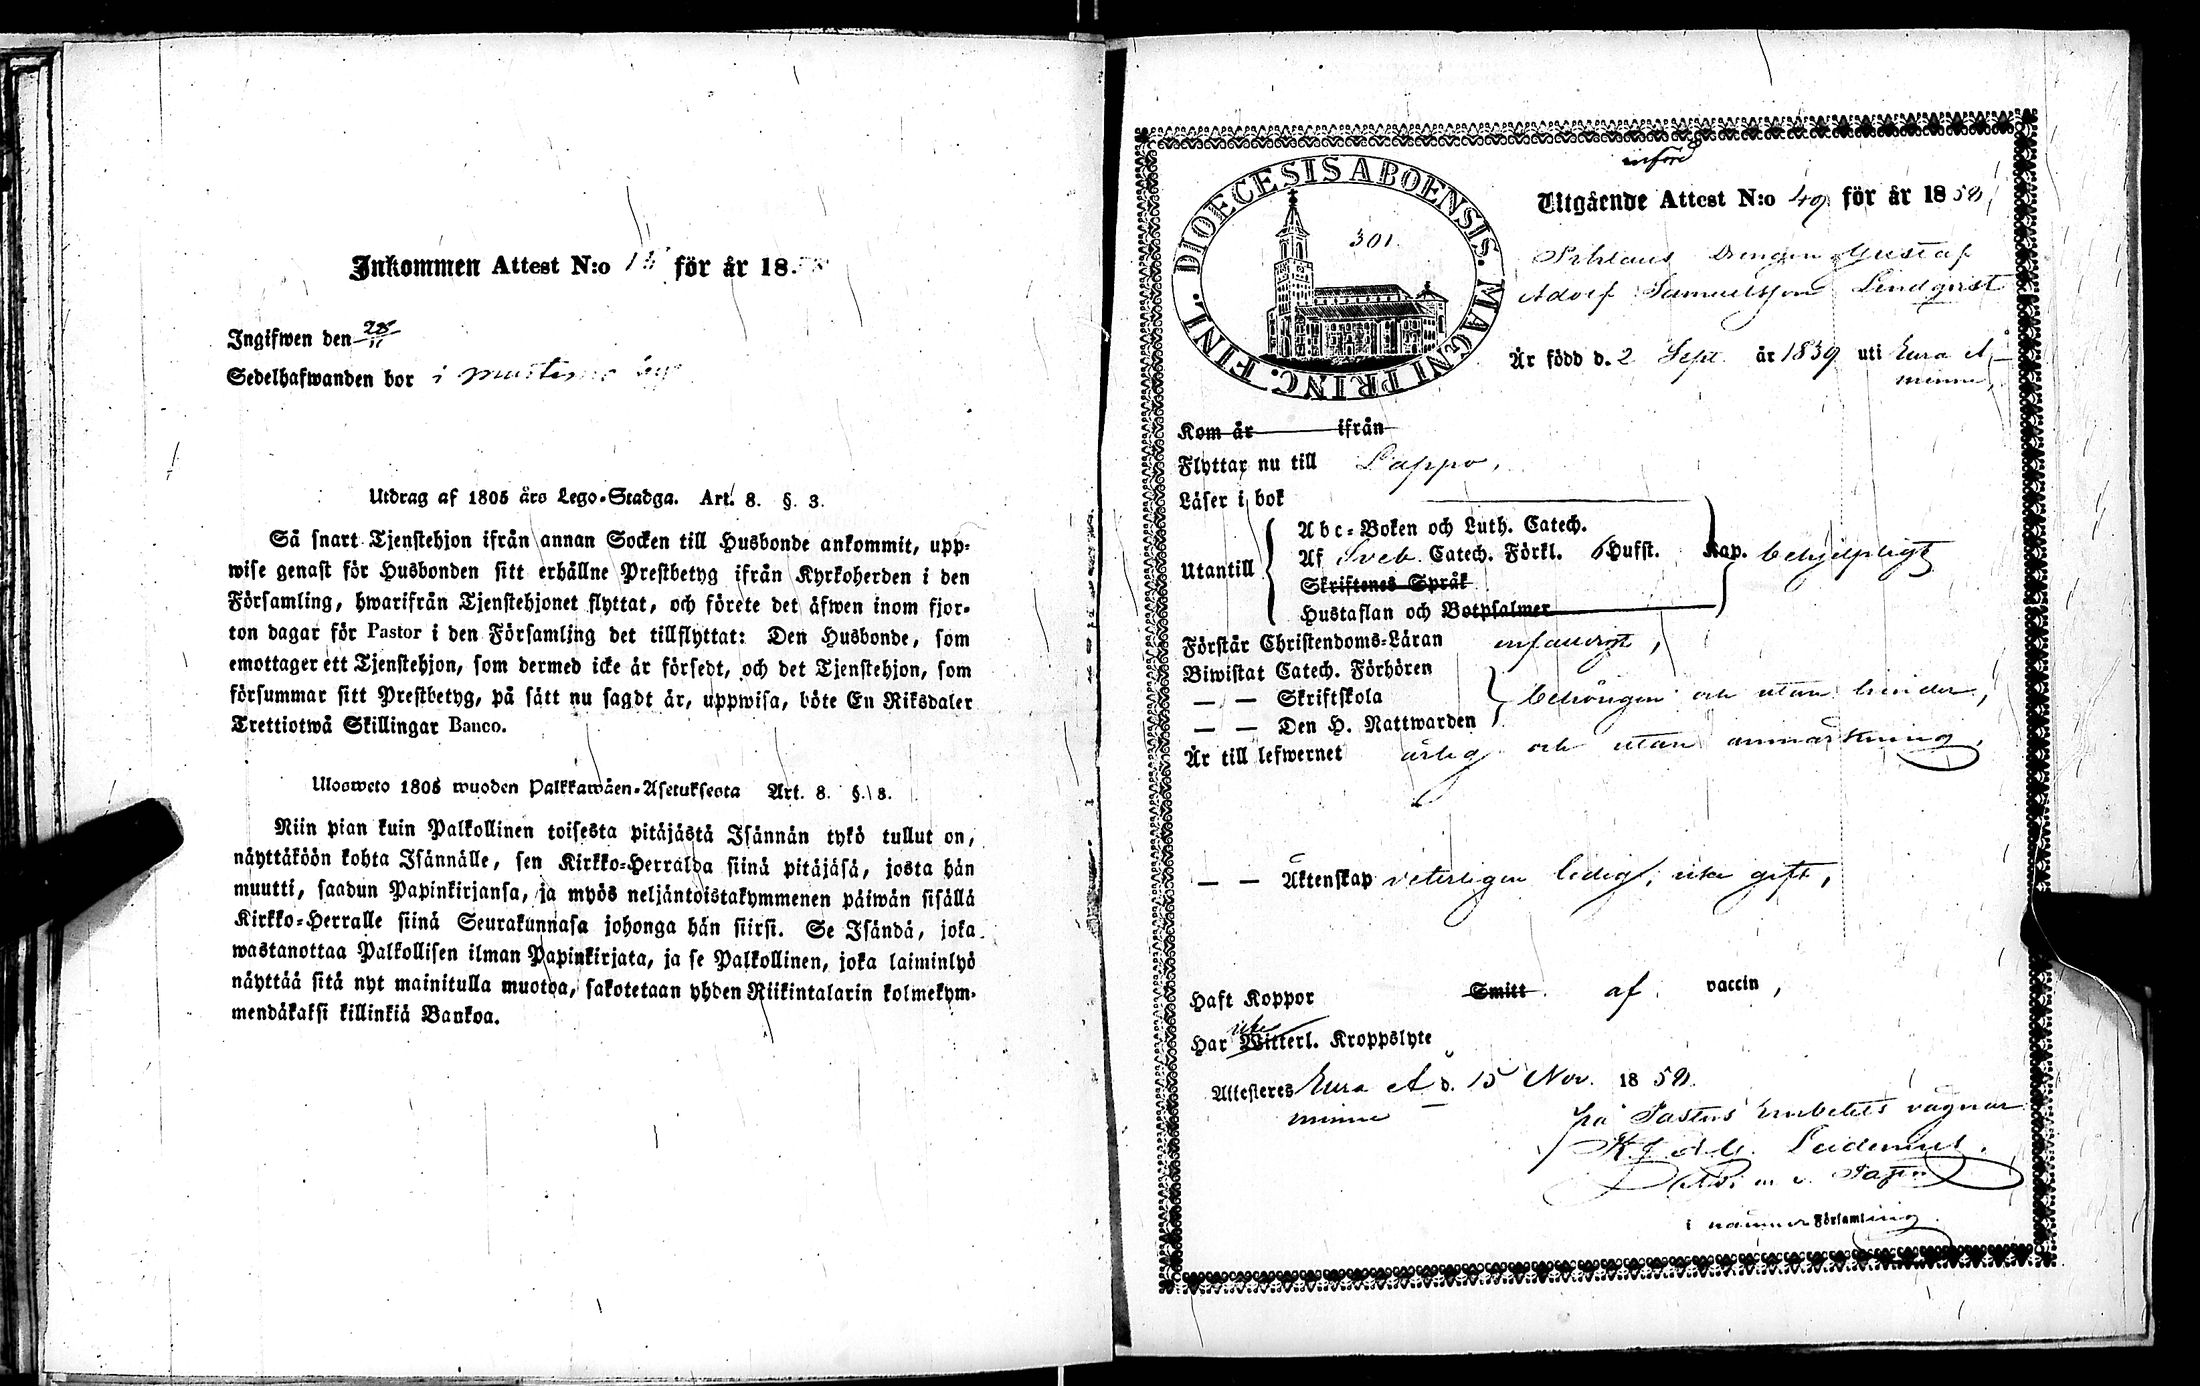 Inkommen Attest N:o 15 för år 18
Ingifwen den 28/11
Sedelhafwanden bor i
Utdrag af 1805 års Lego-Stadga. Art. 8. §. 3.
Så snart Tjenstehjon ifrån annan Socken till Husbonde ankommit, upp-
wise genast för Husbonden sitt erhållne Prestbetyg ifrån Kyrkoherden i den
Församling, hwarifrån Tjenstehjonet flyttat, och förete det äfwen inom fjor-
ton dagar för Pastor i den Församling det tillflyttat: Den Husbonde, som
emottager ett Tjenstehjon, som dermed icke är försedt, och det Tjenstehjon, som
försummar sitt Prestbetyg, på sätt nu sagdt är, uppwisa, böte En Riksdaler
Trettiotwå Skillingar Banco.
Ulosweto 1805 wuoden Palkkawäen-Asetuksesta Art. 8. §. 3.
Niin pian kuin Palkollinen toisesta pitäjästä Isännän tykö tullut on,
näyttäköön kohta Isännälle, sen Kirkko-Herralda siinä pitäjäsä, josta hän
muutti, saadun Papinkirjansa, ja myös neljäntoistakymmenen päiwän sisällä
Kirkko-Herralle siinä Seurakunnasa johonga hän siirsi. Se Isändä, joka
wastanottaa Palkollisen ilman Papinkirjata, ja se Palkollinen, joka laiminlyö
näyttää sitä nyt mainitulla muotoa, sakotetaan yhden Riikintalarin kolmekym-
mendäkaksi killinkiä Bankoa.
införd
DIOECESIS ABOENSIS. MAGNI PRINC. FINL.
301.
Utgående Attest N:o 49 för år 1858,
Drengen Gustaf
Adolf Samuelsson Lindqvist
Är född d. 2 Sept. år 1839 uti Eura Å
minne,
Kom år ifrån
Flyttar nu till Lappo,
Läser i bok
Utantill
Abc-Boken och Luth. Catech.
Af Sveb. Catech. Förkl. 6 Hufst. Kap. behjelpligt
Skriftenes Språk
Hustaflan och Botpsalmer
Förstår Christendoms-Läran enfaldigt,
Biwistat Catech. Förhören
— — Skriftskola behörigen och utan hinder,
— — Den H. Nattwarden
Är till lefwernet ärlig och utan anmärkning,
— — Äktenskap veterligen ledig, icke gift,
Haft Koppor Smitt af vaccin,
icke
Har Witterl. Kroppslyte
Attesteres Eura Å d. 15 Nov. 1858.
minne
på Pastors Embetets vägnar
i nämnde Församling.